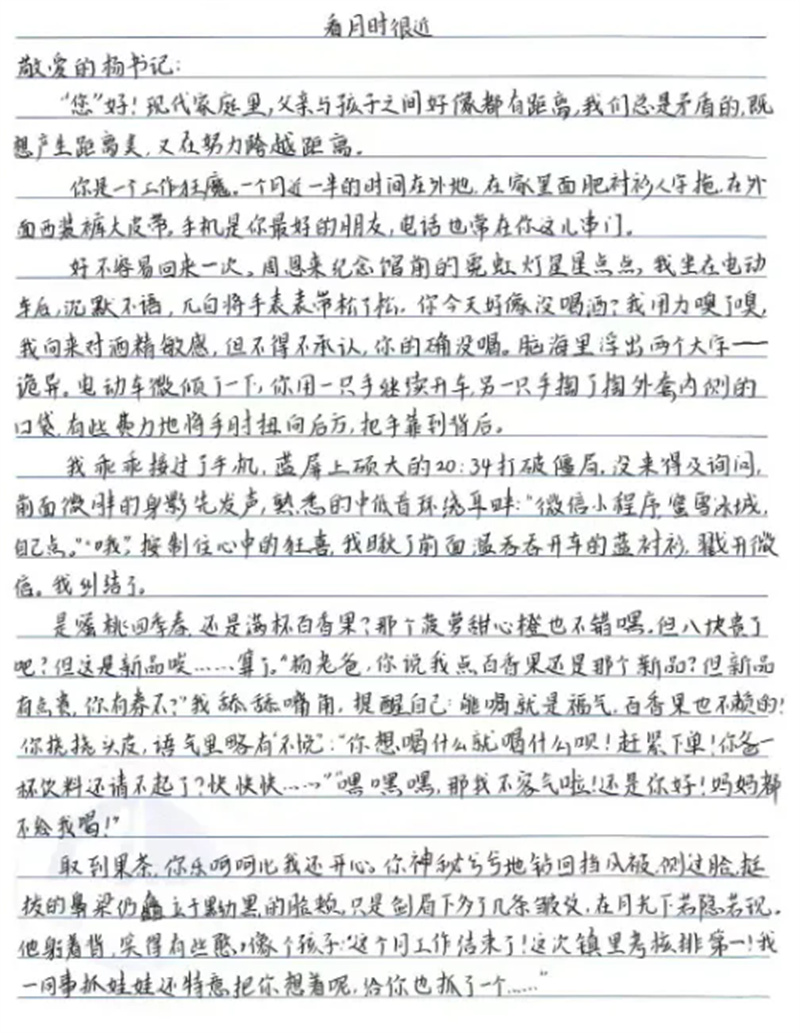 看月时很近
敬爱的杨书记:
"您"好!现代家庭里,父亲与孩子之间好像都有距离,我们总是矛盾的,既
想产生距离美,又在努力跨越距离。
你是一个工作狂魔。一个月近一半的时间在外地,在家里面肥衬衫人字拖,在外
面西装裤大皮带。手机是你最好的朋友,电话也常在你这儿串门。
好不容易回来一次。周恩来纪念馆前的霓虹灯星星点点,我坐在电动
车后,沉默不语,兀自将手表表带松了松。你今天好像没喝酒?我用力嗅了嗅,
我向来对酒精敏感,但不得不承认,你的确没喝。脑海里浮出两个大字——
诡异。电动车微倾了一下,你用一只手继续开车,另一只手掏了掏外套内侧的
口袋,有些费力地将手肘扭向后方,把手靠到背后。
我乖乖接过了手机,蓝屏上硕大的20:34打破僵局,没来得及询问,
前面微胖的身影先发声,熟悉的中低音环绕耳畔:"微信小程序,蜜雪冰城,
自己点。""哦",按制住心中的狂喜,我瞅了前面温吞吞开车的蓝衬衫,戳开微
信。我纠结了。
是蜜桃四季春,还是满杯百香果?那个菠萝甜心橙也不错嘿,但八块贵了
吧?但这是新品唉……算了。"杨老爸,你说我点百香果还是那个新品?但新品
有点贵,你有券不?"我舔舔嘴角,提醒自己:能喝就是福气,百香果也不赖的!
你挠挠头皮,语气里略有"不悦":"你想喝什么就喝什么呗!赶紧下单!你爸一
杯饮料还请不起了?快快快……""嘿嘿嘿,那我不客气啦!还是你好!妈妈都
不给我喝!"
取到果茶,你乐呵呵比我还开心。你神秘兮兮地钻回挡风被,侧过脸,挺
拔的鼻梁仍立于黝黑的脸颊,只是剑眉下多了几条皱纹,在月光下若隐若现。
他躬着背,笑得有些憨,像个孩子:"这个月工作结束了!这次镇里考核排第一!我
一同事抓娃娃还特意把你想着呢,给你也抓了一个……"